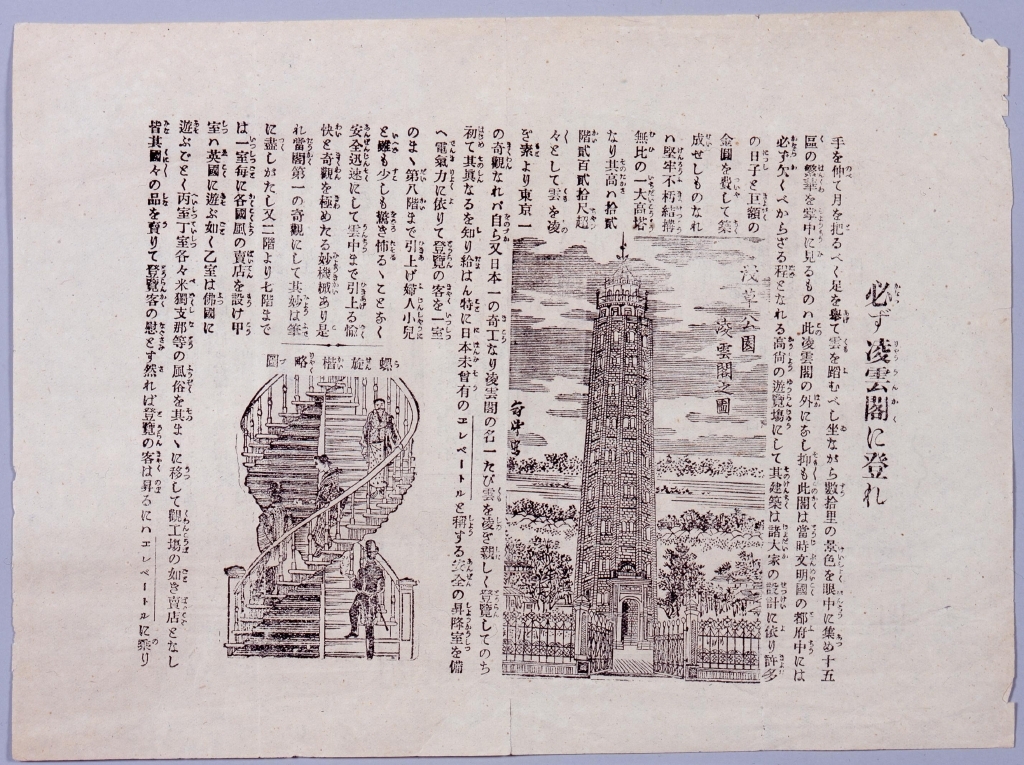 必ず凌雲閣に登れ
手を伸て月を把るべく足を擧て雲を踏むべし坐ながら數拾里の景色を眼中に集め十五
區の繁華を掌中に見るものハ此凌雲閣の外になし抑も此閣は當時文明國の都府中には
必ず欠くべからざる程となれる高尚の遊覽塲にして其建築は諸大家の設計に依り許多
の日子と巨額の
金圓を費して築
成せしものなれ
ハ堅牢不朽結搆
無比の一大高塔
なり其高ハ拾貳
階貳百貳拾尺超
々として雲を凌
ぎ素より東京一
の奇觀なれバ自ら又日本一の奇工なり凌雲閣の名一たび雲を凌ぎ親しく登覽してのち
初て其眞なるを知り給はん特に日本未曾有のエレベートルと稱する安全の昇降室を備
へ電氣力に依りて登覽の客を一室
のまゝ第八階まで引上げ婦人小兒
と雖も少しも驚き怖るゝことなく
安全迅速にして雲中まで引上る愉
快と奇觀を極めたる妙機械あり是
れ當閣第一の奇觀にして其妙は筆
に盡しがたし又二階より七階まで
は一室毎に各國風の賣店を設け甲
室ハ英國に遊ぶ如く乙室は佛國に
遊ぶごとく丙室丁室各々米獨支那等の風俗を其まゝに移して觀工塲の如き賣店となし
皆其國々の品を賣りて登覽客の慰とす然れば登覽の客は昇るにハエレベートルに乘り
淺草公園
凌雲閣之圖
螺旋楷略圖